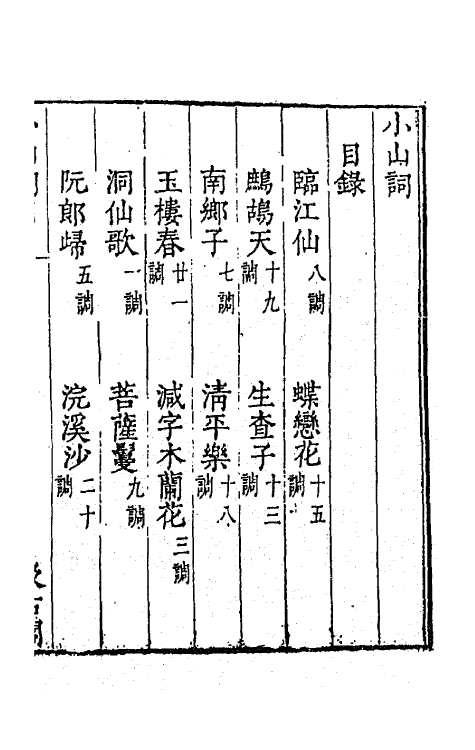 小山詞
目錄
臨江仙八調　蝶戀花十五調
鷓鴣天十九調　生查子十三調
南鄉子七調　清平樂十八調
玉樓春廿一調　減字木蘭花三調
洞仙歌一調　菩薩鬘九調
阮郎歸五調　浣溪沙二十調